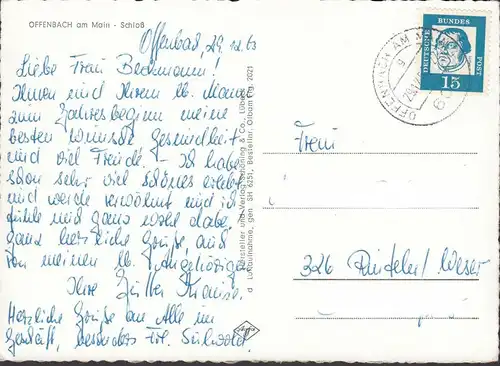 OFFENBACH am Main - Schloß
Offenbach, 29. 12. 63
Liebe Frau Beckmann!
Ihnen und Ihrem lb. Mann
zum Jahresbeginn meine
besten Wünsche Gesundheit
und viel Freude. - Ich habe
schon sehr viel schönes erlebt
und werde verwöhnt und ich
fühle mich ganz wohl dabei
ganz herzliche Grüße, auch
von meinen lb. Angehörigen
Ihre
Herzliche Grüße an Alle im
Geschäft, besonders Frl.
Hersteller und Verlag Schöning & Co., Lübeck
gen. SH 6251, Bestellnr. Offbam Eng. 2021
DEUTSCHE BUNDESPOST
15
OFFENBACH AM MAIN
Frau
326 Rinteln/Weser